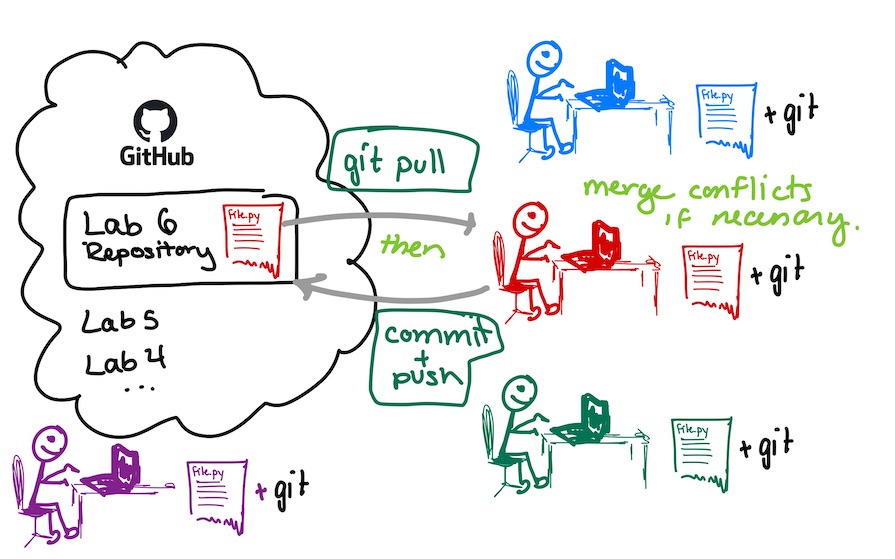 GitHub
Lab 6
Repository
File.py
Lab 5
Lab 4
...
git pull
then
commit
+
push
File.py
+ git
merge conflicts
if necessary.
File.py
+ git
File.py
+ git
File.py
+ git